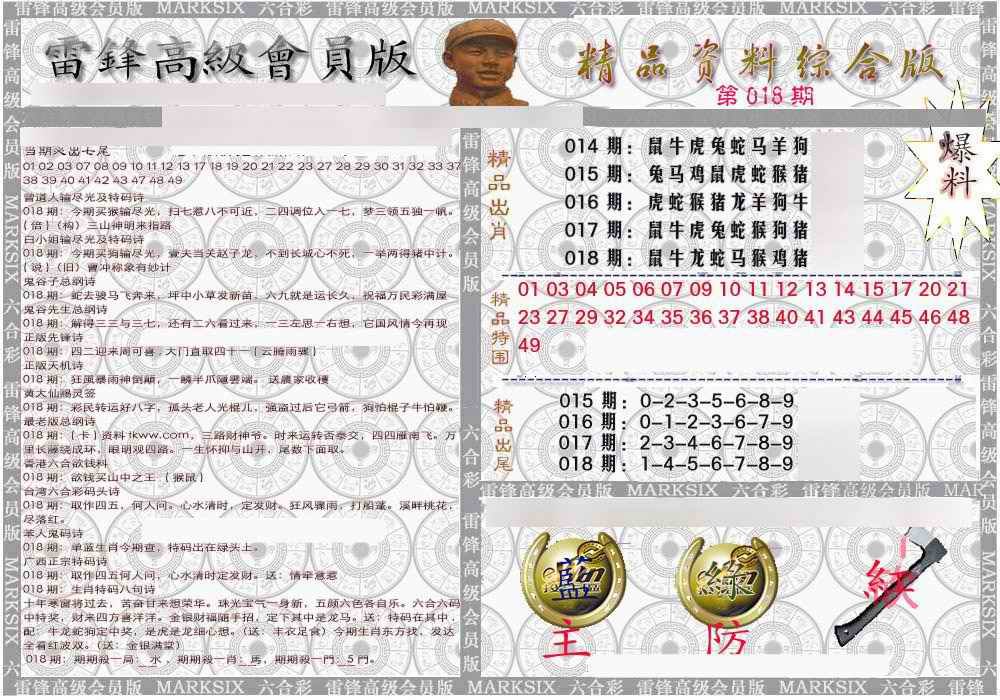 雷锋高级会员版 MARKSIX 六合彩 雷锋高级会员版 MARKSIX 六合彩 雷锋高级会员版 MARKSIX 六合彩 雷锋
雷鋒高級會員版
精品资料综合版
第018期
爆料
当期爻出七尾
01 02 03 07 08 09 10 11 12 13 17 18 19 20 21 22 23 27 28 29 30 31 32 33 37
38 39 40 41 42 43 47 48 49
曾道人输尽光及特码诗
018期：今期买猴输尽光，扫七惹八不可近，二四调位入一七，梦三领五独一帆。
{倍}（构）三山神明来指路
白小姐输尽光及特码诗
018期：今期买狗输尽光，壹夫当关赵子龙，不到长城心不死，一举两得猪中计。
{说}（旧）曹冲称象有妙计
鬼谷子总纲诗
018期：蛇去骏马飞奔来，坪中小草发新苗，六九就是运长久，祝福万民彩满屋
鬼谷先生总纲诗
018期：解得三三与三七，还有二六看过来，一三左思一右想，它国风情今再现
正版先锋诗
018期：四二迎来周可喜，大门直取四十一{云腾雨骤}
正版天机诗
018期：狂風暴雨神倒顛，一鱗半爪隱雲端。送農家收穫
黄大仙赐灵签
018期：彩民转运好八字，孤头老人光棍儿，强盗过后它弓箭，狗怕棍子牛怕鞭。
最老版总纲诗
018期：{卡}资料tkww.com，三路财神爷。时来运转否泰交，四四雁南飞。万
里长藤绕成环，眼明观四路。一生怀抑与山开，尾数下面取。
香港六合欲钱料
018期：欲钱买山中之王 {猴鼠}
台湾六合彩码头诗
018期：取作四五，何人问。心水清时，定发财。狂风骤雨，打船蓬。溪畔桃花，
尽落红。
苯人鬼码诗
018期：单蓝生肖今期查，特码出在绿头上。
广西正宗特码诗
018期：取作四五何人问，心水清时定发财。送：情牵意惹
018期：生肖特码八句诗
十年寒窗将过去，苦奋日来想荣华。珠光宝气一身新，五颜六色各自乐。六合六码
中特奖，财来四方喜洋洋。金银财福随手招，定下其中是龙马。送：特码在其中，
配：牛龙蛇狗定中奖，是虎是龙细心想。（送：丰衣足食）今期生肖东方找，发达
全看红波双。（送：金银满堂）
018期：期期殺一局：水，期期殺一肖：馬，期期殺一門：5門。
精品出肖
014 期：鼠牛虎兔蛇马羊狗
015 期：兔马鸡鼠虎蛇猴猪
016 期：虎蛇猴猪龙羊狗牛
017 期：鼠牛虎兔蛇猴狗猪
018 期：鼠牛龙蛇马猴鸡猪
精品特围
01 03 04 05 06 07 09 10 11 12 13 14 15 17 20 21
23 27 29 32 34 35 36 37 38 40 41 43 44 45 46 48
49
精品出尾
015 期：0-2-3-5-6-8-9
016 期：0-1-2-3-6-7-9
017 期：2-3-4-6-7-8-9
018 期：1-4-5-6-7-8-9
雷锋高级会员版 MARKSIX 六合彩 雷锋高级会员版 MAR
藍
主
綠
防
紅
雷锋高级会员版 MARKSIX 六合彩 雷锋高级会员版 MARKSIX 六合彩 雷锋高级会员版 MARKSIX 六合彩 雷锋